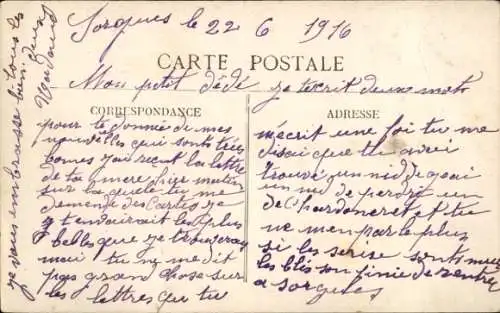 Sorgues le 22 6 1916
CARTE POSTALE
Mon petit dédé je tecrit deux mots
CORRESPONDANCE
pour te donnée de mes
nouvelles qui sont tres
bonnes jai recut la lettre
de ta mere hier matin
sur la quelle tu me
demande des cartes je
tenvairait les plus
belles que je trouverai
mai tu ne me dit
pas grand chose sur
les lettres que tu
ADRESSE
mécrit une foi tu me
disai que tu avai
trouvé un nid de geai
un nid de perdri un
de chardonneret et tu
ne men parle plus
si les serise sont mur
les blés on finie de rentre
a sorgues
je vous embrasse bien tous les
deux